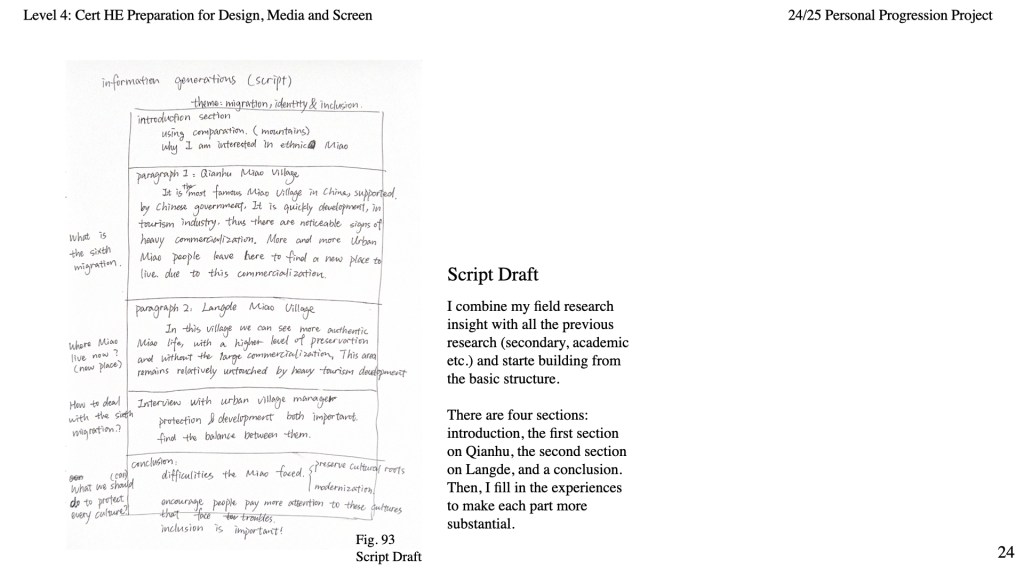 Level 4: Cert HE Preparation for Design, Media and Screen
24/25 Personal Progression Project
information generations (script)
theme: migration, identity & inclusion.
introduction section
using comparation. (mountains)
why I am interested in ethnic Miao
paragraph 1: Qianhu Miao Village
It is the most famous Miao Village in China, supported
by Chinese government, It is quickly development, in
tourism industry, thus there are noticeable signs of
heavy commercialization, More and more Urban
Miao people leave here to find a new place to
live. due to this commercialization.
What is
the sixth
migration.
paragraph 2: Langde Miao Village
In this village we can see more authentic
Miao life, with a higher level of preservation
and without the large commercialization, This area
remains relatively untouched by heavy tourism development
Where Miao
live now?
(new place)
Interview with urban village manager
protection & development both important.
find the balance between them.
How to deal
with the sixth
migration.?
conclusion:
difficulities the Miao faced. { preserve cultural roots
modernization.
encourage people pay more attention to these cultures
that face troubles.
inclusion is important!
(can)
What we should
do to protect
every culture?
Fig. 93
Script Draft
Script Draft
I combine my field research
insight with all the previous
research (secondary, academic
etc.) and starte building from
the basic structure.
There are four sections:
introduction, the first section
on Qianhu, the second section
on Langde, and a conclusion.
Then, I fill in the experiences
to make each part more
substantial.
24